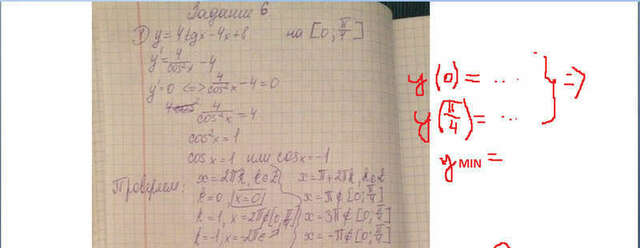 Задание 6
1) y = 4tgx - 4x + 8 на [0; π/4]
y' = 4/cos²x - 4
y' = 0 <=> 4/cos²x - 4 = 0
4/cos²x = 4
cos²x = 1
cosx = 1 или cosx = -1
x = 2πk, k∈Z x = π + 2πk, k∈Z
Проверяем: k = 0 x = 0 x = π ∉ [0; π/4]
k = 1, x = 2π ∉ [0; π/4] x = 3π ∉ [0; π/4]
k = -1, x = -2π ∉ x = -π ∉ [0; π/4]
y(0) = ...
y(π/4) = ... } =>
y MIN =